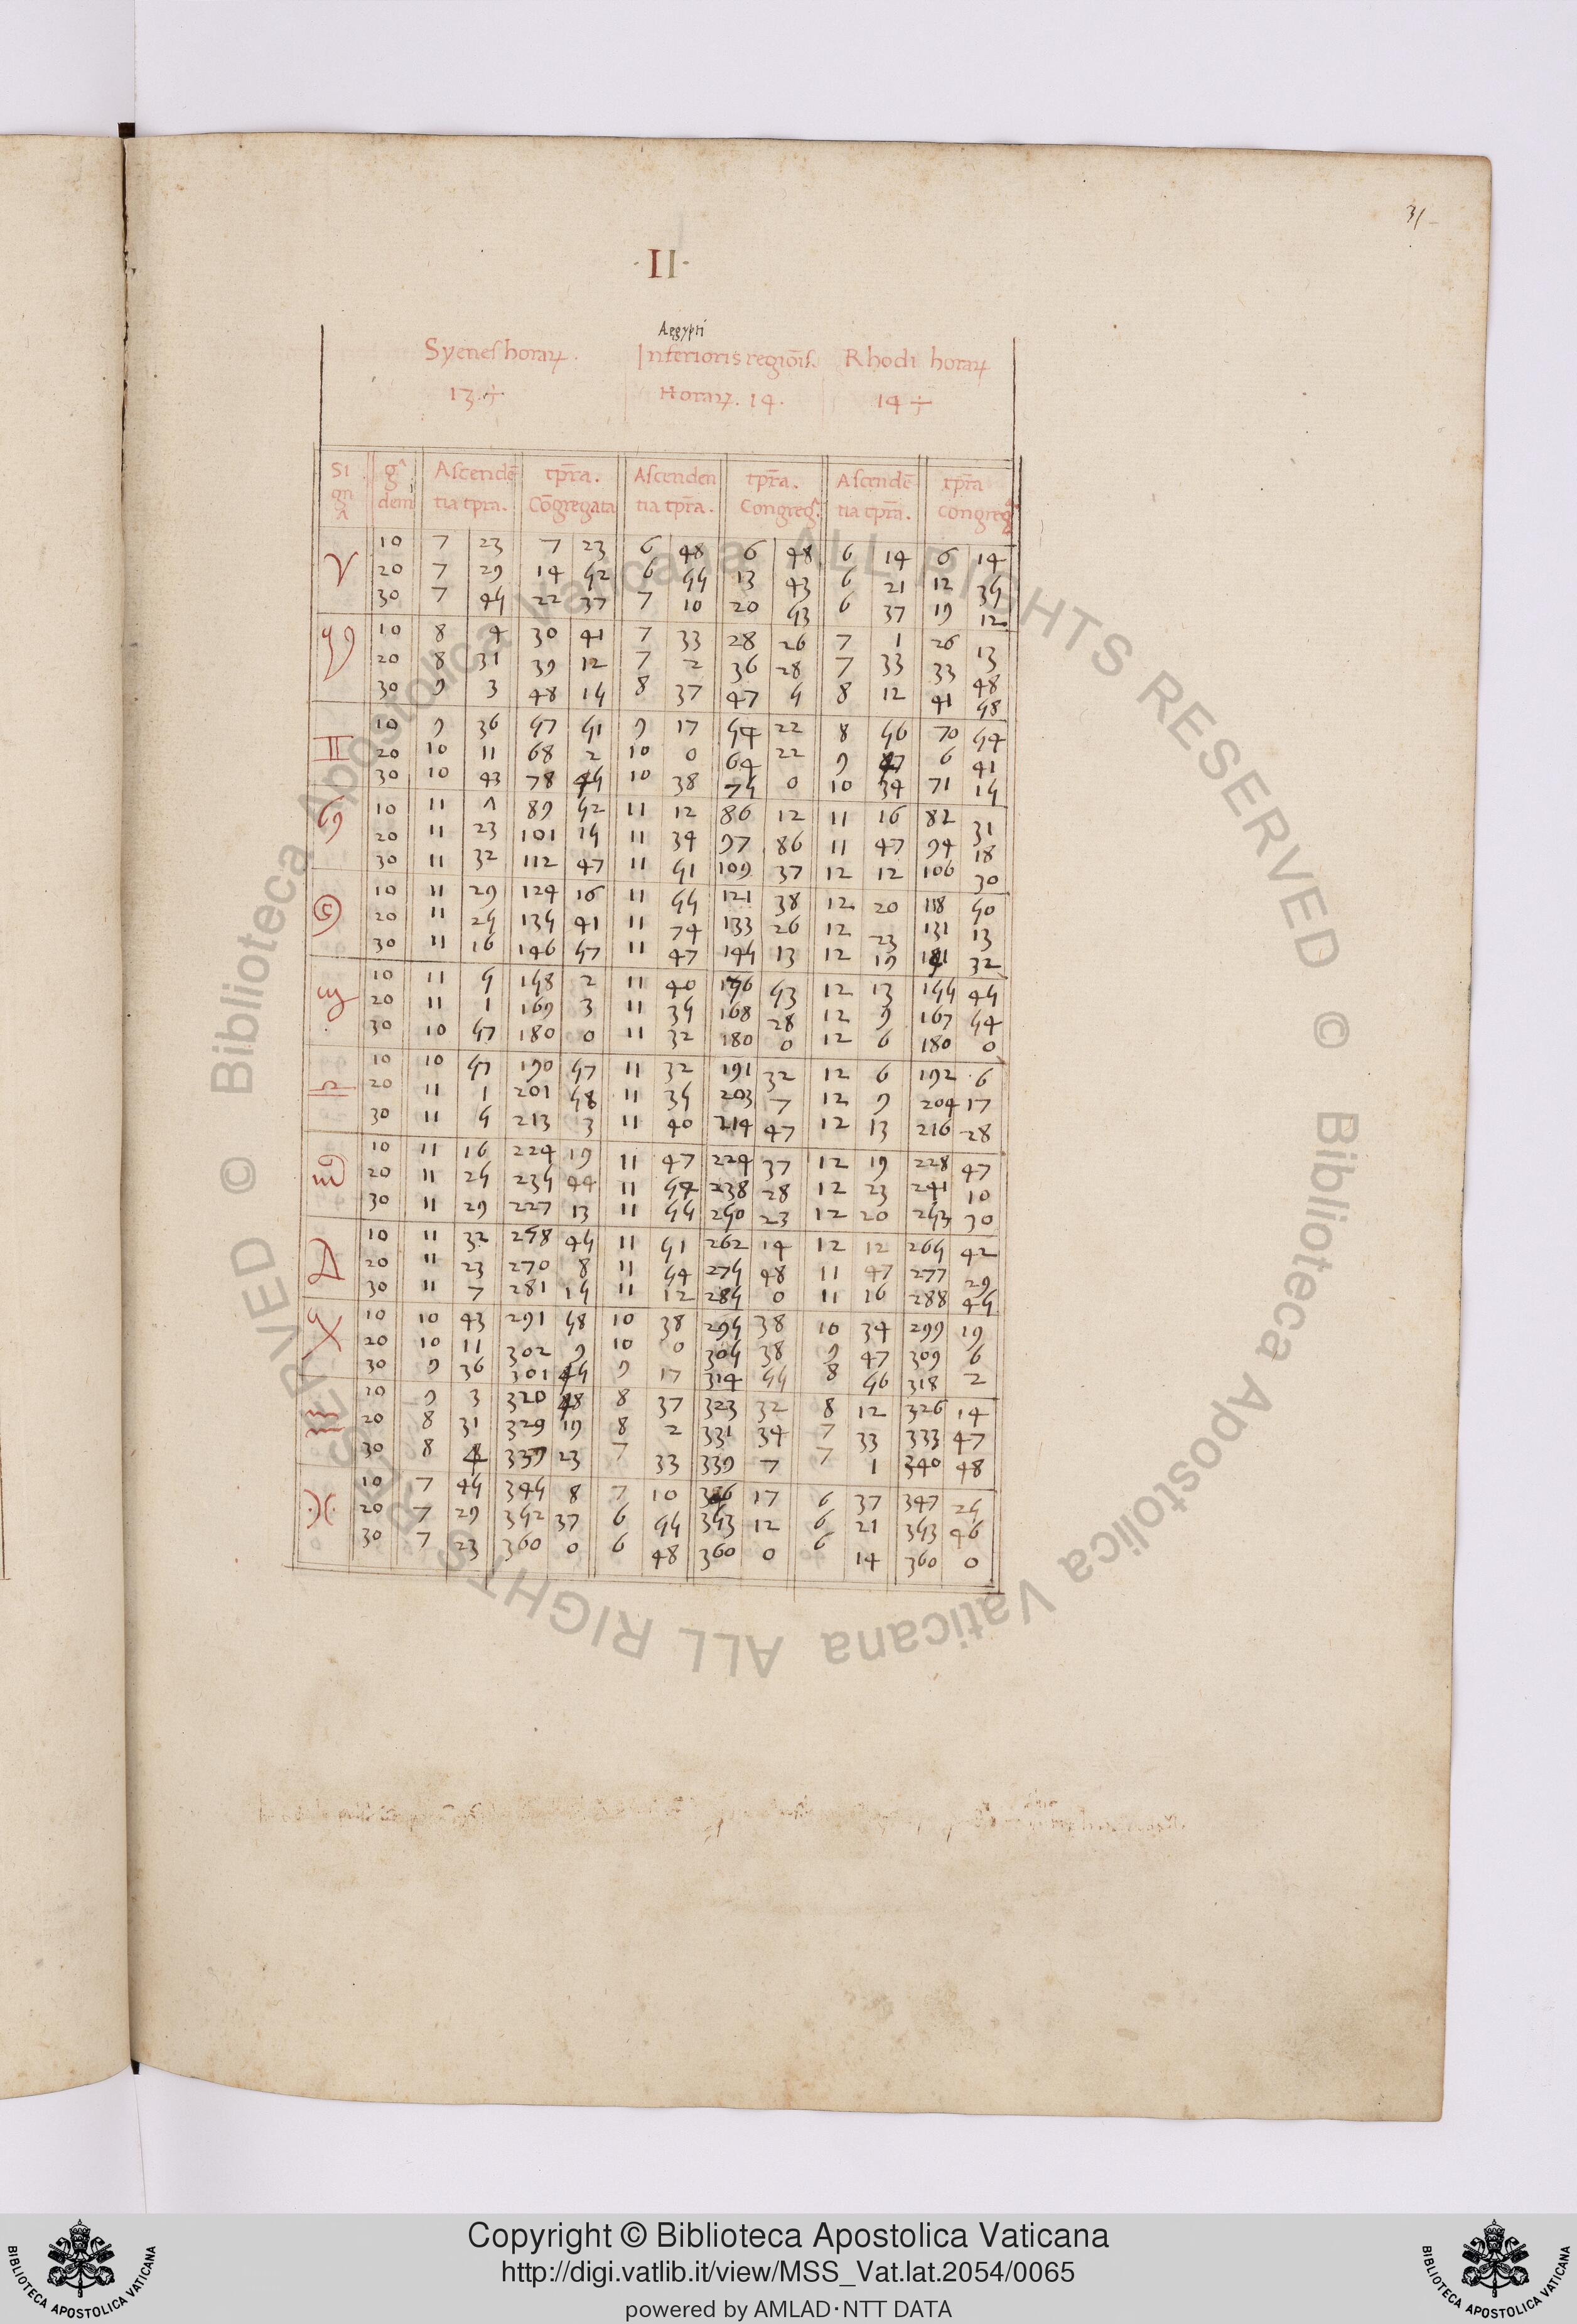 31
·II·
Aegypti
Syenes horaꝝ. Inferioris regiōis. Rhodi horaꝝ
13.÷ Horaꝝ. 14. 14÷
Si g^ Ascendē tp̄ra. Ascenden tp̄ra. Ascendē tp̄ra
gn dem tia tpra. Cōgregata tia tp̄ra. Congreg^. tia tp̄ra. congreg^
a
♈ 10 7 23 7 23 6 48 6 48 6 14 6 14
20 7 29 14 52 6 55 13 43 6 21 12 35
30 7 45 22 37 7 10 20 53 6 37 19 12
♉ 10 8 4 30 41 7 33 28 26 7 1 26 13
20 8 31 39 12 7 2 36 28 7 33 33 48
30 9 3 48 15 8 37 47 5 8 12 41 58
♊ 10 9 36 57 51 9 17 54 22 8 56 70 54
20 10 11 68 2 10 0 64 22 9 47 6 41
30 10 43 78 45 10 38 75 0 10 34 71 15
♋ 10 11 7 89 52 11 12 86 12 11 16 82 31
20 11 23 101 15 11 34 97 86 11 47 94 18
30 11 32 112 47 11 51 109 37 12 12 106 30
♌ 10 11 29 124 16 11 55 121 38 12 20 118 50
20 11 25 135 41 11 74 133 26 12 23 131 13
30 11 16 146 57 11 47 145 13 12 19 141 32
♍ 10 11 5 158 2 11 40 156 53 12 13 155 45
20 11 1 169 3 11 35 168 28 12 9 167 54
30 10 57 180 0 11 32 180 0 12 6 180 0
♎ 10 10 57 190 57 11 32 191 32 12 6 192 6
20 11 1 201 58 11 35 203 7 12 9 204 17
30 11 5 213 3 11 40 214 47 12 13 216 28
♏ 10 11 16 224 19 11 47 224 37 12 19 228 47
20 11 25 235 44 11 54 238 28 12 23 241 10
30 11 29 227 13 11 55 250 23 12 20 253 30
♐ 10 11 32 258 45 11 51 262 14 12 12 265 42
20 11 23 270 8 11 54 275 48 11 47 277 29
30 11 7 281 15 11 12 285 0 11 16 288 45
♑ 10 10 43 291 58 10 38 295 38 10 34 299 19
20 10 11 302 9 10 0 305 38 9 47 309 6
30 9 36 301 45 9 17 314 55 8 56 318 2
♒ 10 9 3 320 48 8 37 323 32 8 12 326 14
20 8 31 329 19 8 2 331 34 7 33 333 47
30 8 4 339 23 7 33 339 7 7 1 340 48
♓ 10 7 45 345 8 7 10 346 17 6 37 347 25
20 7 29 352 37 6 55 353 12 6 21 353 46
30 7 23 360 0 6 48 360 0 6 14 360 0
© Biblioteca Apostolica Vaticana ALL RIGHTS RESERVED © Biblioteca Apostolica Vaticana ALL RIGHTS RESERVED
Copyright © Biblioteca Apostolica Vaticana
http://digi.vatlib.it/view/MSS_Vat.lat.2054/0065
powered by AMLAD·NTT DATA
BIBLIOTECA APOSTOLICA VATICANA
BIBLIOTECA APOSTOLICA VATICANA